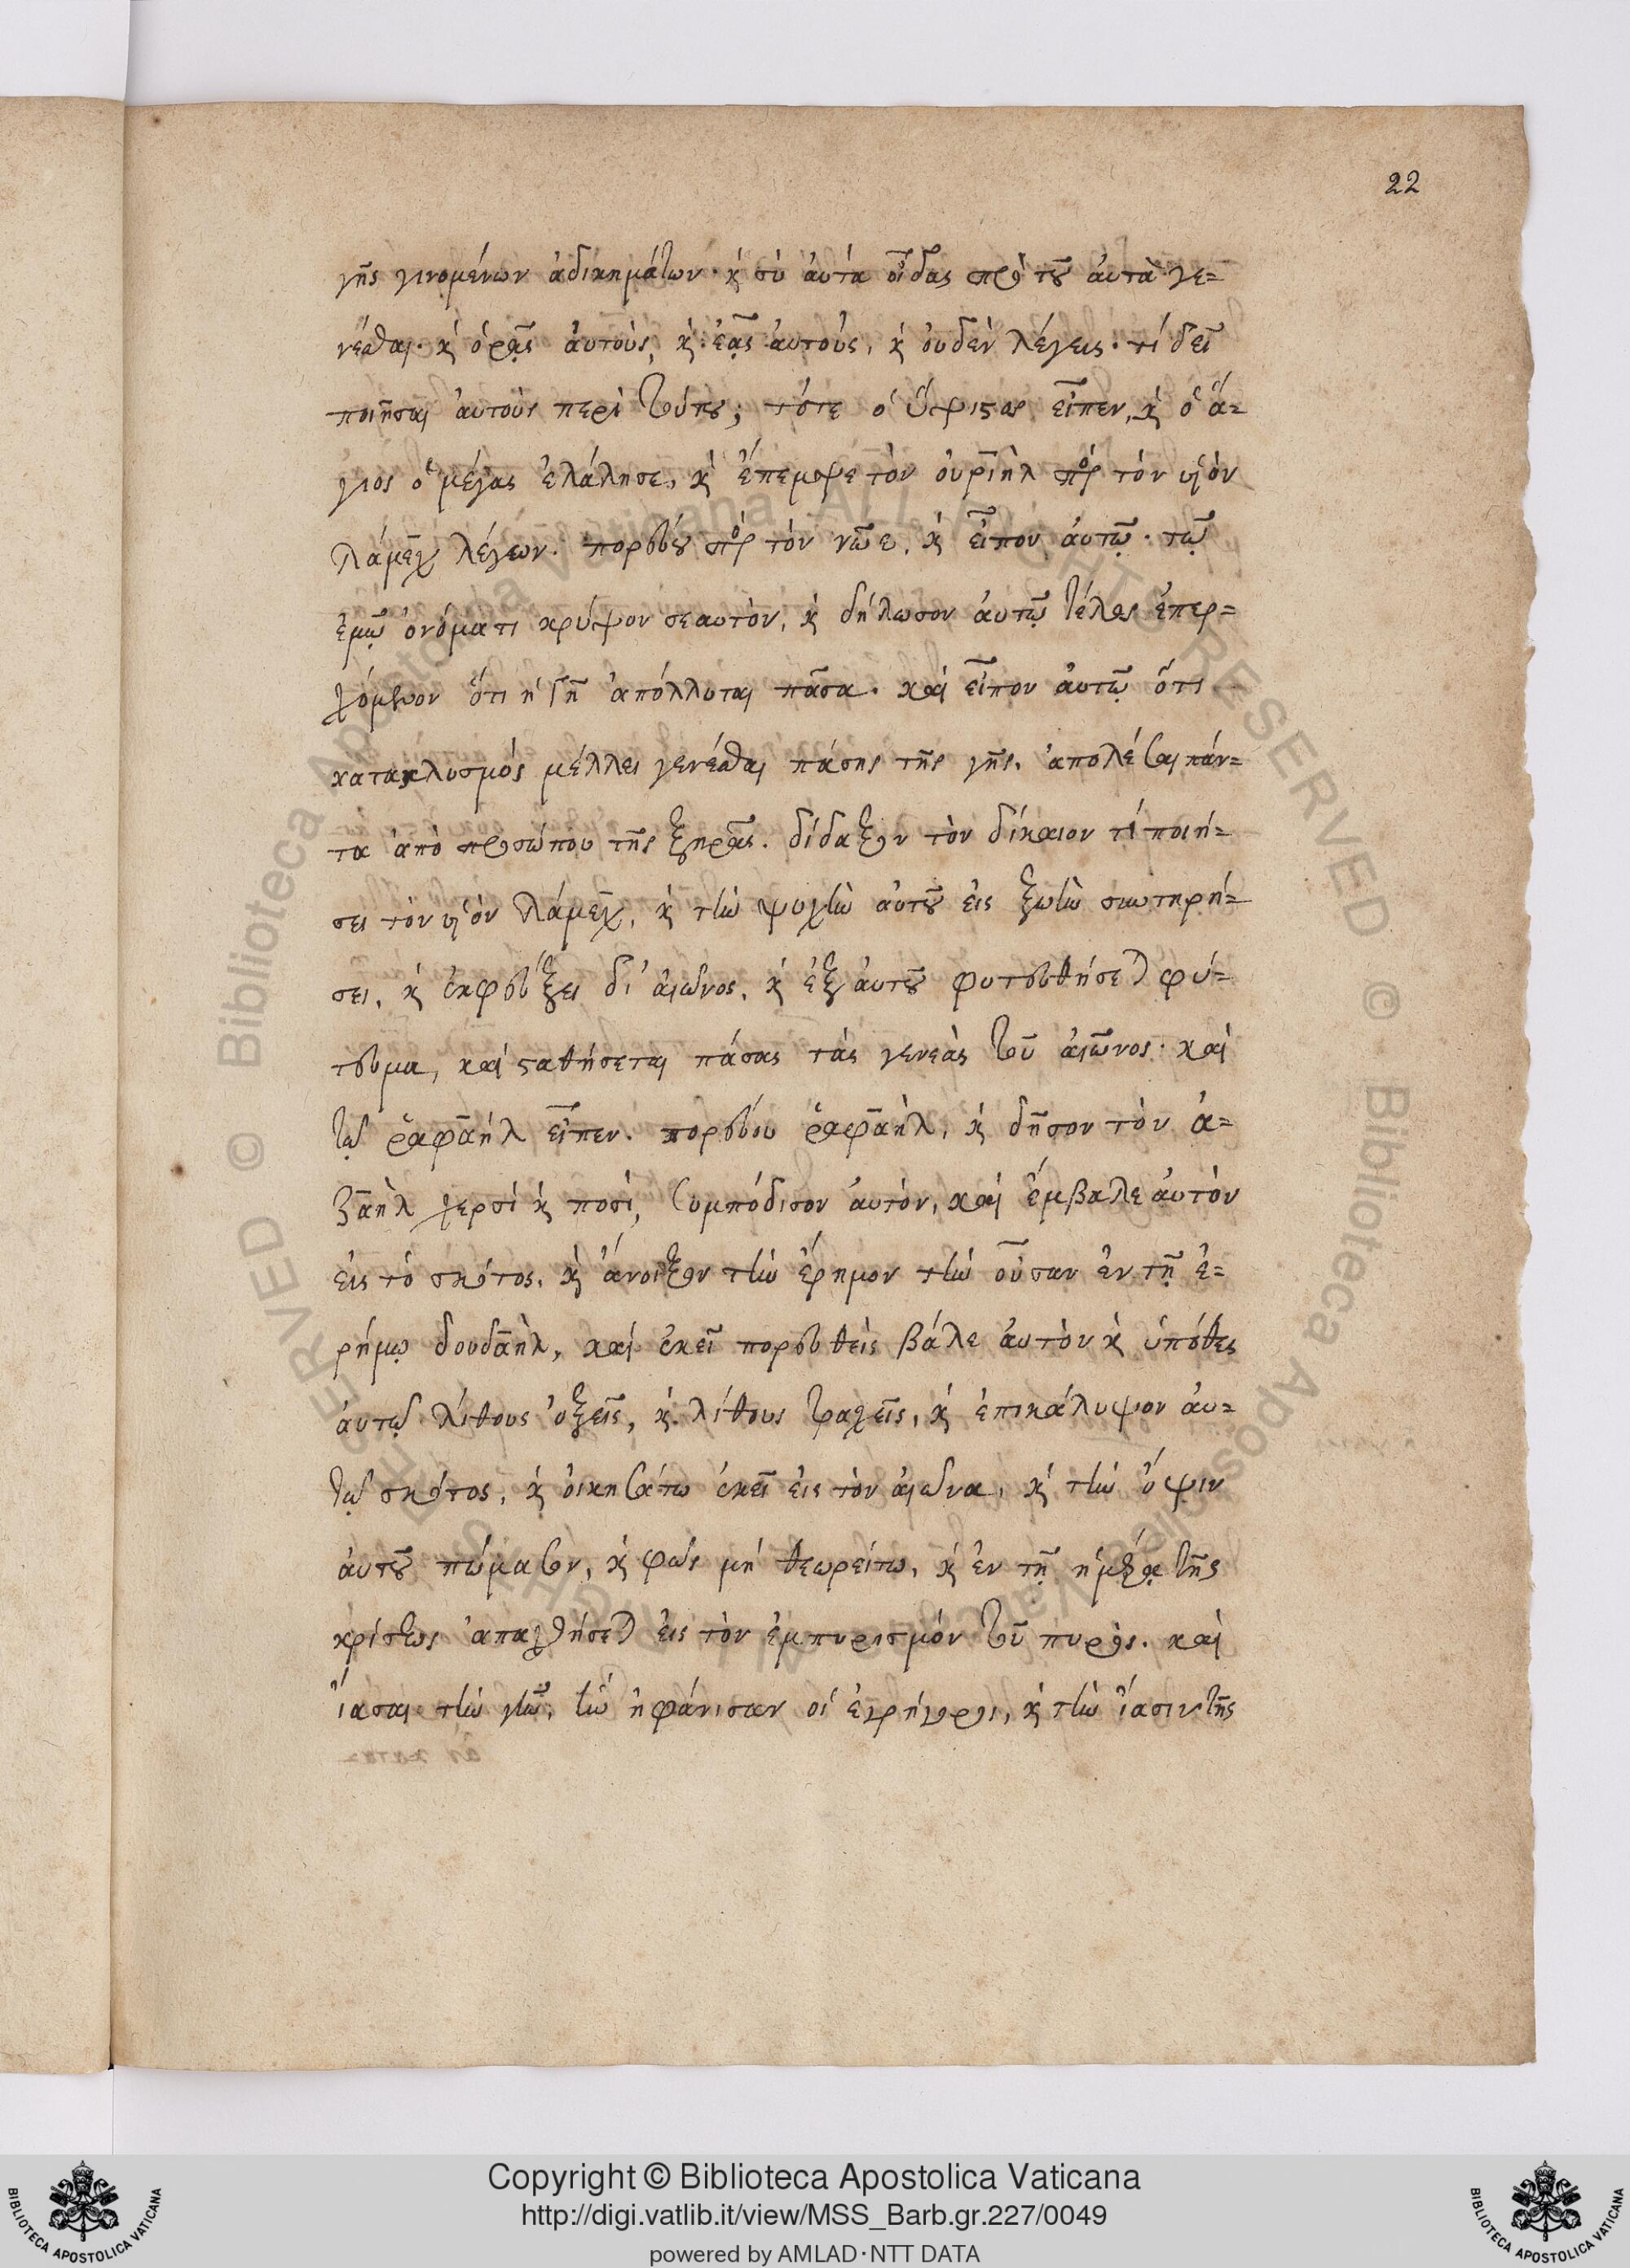 22
γῆς γινομένων ἀδικημάτων· κ̀ σὺ ἀυτὰ οἶδας πρὸ τοῦ ἀυτὰ γε=
νέσθαι· κ̀ ὁρᾷς ἀυτοὺς, κ̀ ἐᾷς ἀυτοὺς, κ̀ ὀυδὲν λέγεις· τί δεῖ
ποιῆσαι ἀυτοὺς περὶ τούτου; τότε ὁ ὕψιστος εἶπεν, κ̀ ὁ ἅ=
γιος ὁ μέγας ἐλάλησε, κ̀ ἔπεμψε τὸν ὀυριὴλ πρὸς τὸν υἱὸν
λάμεχ λέγων· πορεύου πρὸς τὸν νῶε, κ̀ εἶπον ἀυτῷ· τῷ
ἐμῷ ὀνόματι κρύψον σεαυτὸν, κ̀ δήλωσον ἀυτῷ τέλος ἐπερ=
χόμενον ὅτι ἡ γῆ ἀπόλλυται πᾶσα. καὶ εἶπον ἀυτῷ ὅτι
κατακλυσμός μέλλει γενέσθαι πάσης τῆς γῆς, ἀπολέσαι πάν=
τα ἀπὸ προσώπου τῆς ξηρᾶς. δίδαξον τὸν δίκαιον τί ποιή=
σει τὸν υἱὸν λάμεχ, κ̀ τὴν ψυχὴν ἀυτοῦ εἰς ζωὴν συντηρή=
σει, κ̀ ἐκφεύξει δι' ἀιῶνος, κ̀ ἐξ ἀυτοῦ φυτευθήσεται φύ=
τευμα, καὶ σταθήσεται πάσας τὰς γενεὰς τοῦ ἀιῶνος· καὶ
τῷ ῥαφαὴλ εἶπεν. πορεύου ῥαφαὴλ, κ̀ δῆσον τὸν ἀ=
ζαὴλ χερσὶ κ̀ ποσὶ, συμπόδισον ἀυτὸν, καὶ ἔμβαλε ἀυτὸν
εἰς τὸ σκότος, κ̀ ἄνοιξον τὴν ἔρημον τὴν οὖσαν ἐν τῇ ἐ=
ρήμῳ δουδαὴλ, καὶ ἐκεῖ πορευθεὶς βάλε ἀυτὸν κ̀ ὑπόθες
ἀυτῷ λίθους ὀξεῖς, κ̀ λίθους τραχεῖς, κ̀ ἐπικάλυψον ἀυ=
τῷ σκότος, κ̀ ὀικησάτω ἐκεῖ εἰς τὸν ἀιῶνα, κ̀ τὴν ὄψιν
ἀυτοῦ πώμασον, κ̀ φῶς μὴ θεωρείτω, κ̀ ἐν τῇ ἡμέρᾳ τῆς
κρίσεως ἀπαχθήσεται εἰς τὸν ἐμπυρισμὸν τοῦ πυρός. καὶ
ἴασαι τὴν γῆν, ἣν ἠφάνισαν οἱ ἐγρήγοροι, κ̀ τὴν ἴασιν τῆς
Copyright © Biblioteca Apostolica Vaticana
http://digi.vatlib.it/view/MSS_Barb.gr.227/0049
powered by AMLAD·NTT DATA
BIBLIOTECA APOSTOLICA VATICANA
BIBLIOTECA APOSTOLICA VATICANA